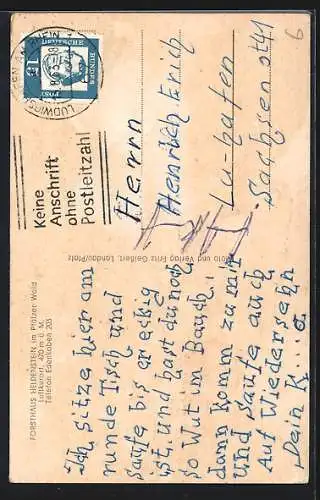 FORSTHAUS HELDENSTEIN im Pfälzer Wald
Luftkurort, 420 m ü. M.
Telefon Edenkoben 205
Ich sitze hier am
runde Tisch und
saufe bis er eckig
ist. und hast du noch
so Wut im Bauch.
dann komm zu mir
und saufe auch
Auf Wiedersehn
Dein K....a
Foto und Verlag Fritz Geißert, Landau/Pfalz
Keine
Anschrift
ohne
Postleitzahl
LUDWIGSHAFEN AM RHEIN
DEUTSCHE
BUNDES
POST
15
Herrn
Heinrich Erich
Lu-hafen
6